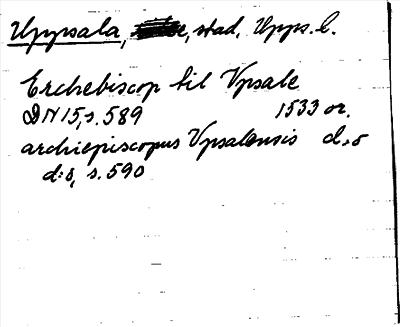 Uppsala, stad, Upps. l.
Erchebiscop til Vpsale
DN 15, s. 589 1533 or.
archiepiscopus Vpsalensis d:o
d:o, s. 590